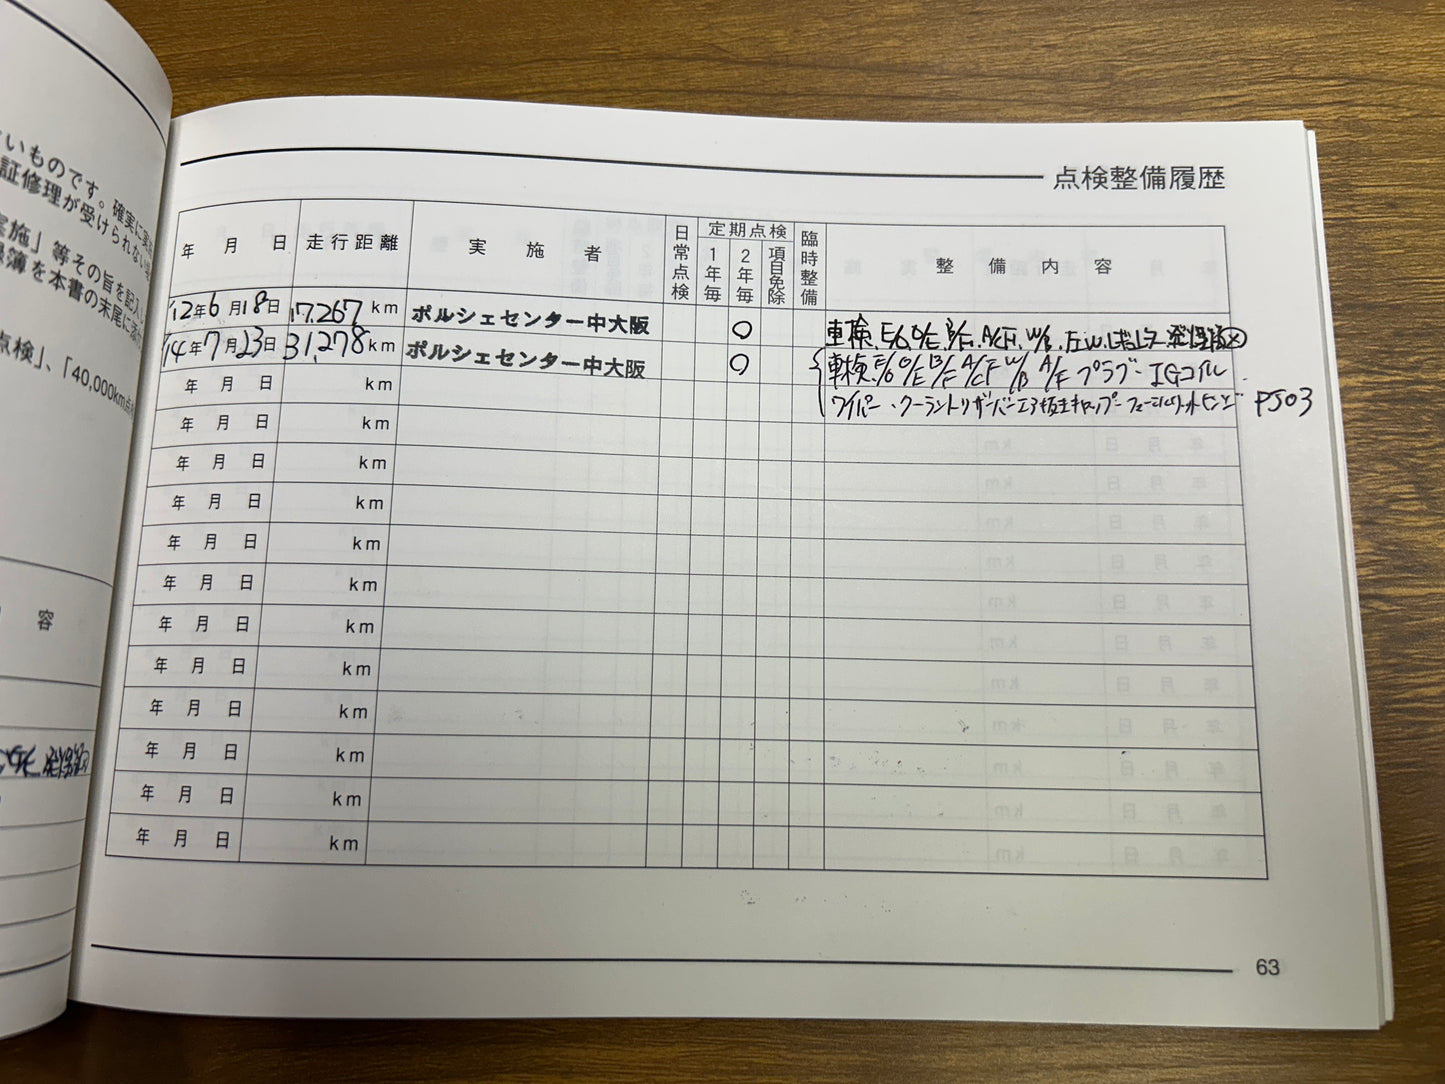 いものです。確実に実施
証修理が受けられない場
実施」等その旨を記入し
録簿を本書の末尾に添付
点検」、「40,000km点検
容
点検整備履歴
年 月 日 走行距離 実施者 日常点検 定期点検 1年毎 2年毎 項目免除 臨時整備 整備内容
'12年6月18日 17,267km ポルシェセンター中大阪 ○ 車検、E/O、O/E、B/F、A/C F、W/B、F.W.レギュレター
'14年7月23日 31,278km ポルシェセンター中大阪 ○ 車検、E/O O/E B/F A/CF W/B A/F プラグ・IGコイル
年 月 日 km ワイパー・クーラントリザーバーエア抜きキャップ PJ03
年 月 日 km
年 月 日 km
年 月 日 km
年 月 日 km
年 月 日 km
年 月 日 km
年 月 日 km
年 月 日 km
年 月 日 km
年 月 日 km
年 月 日 km
63